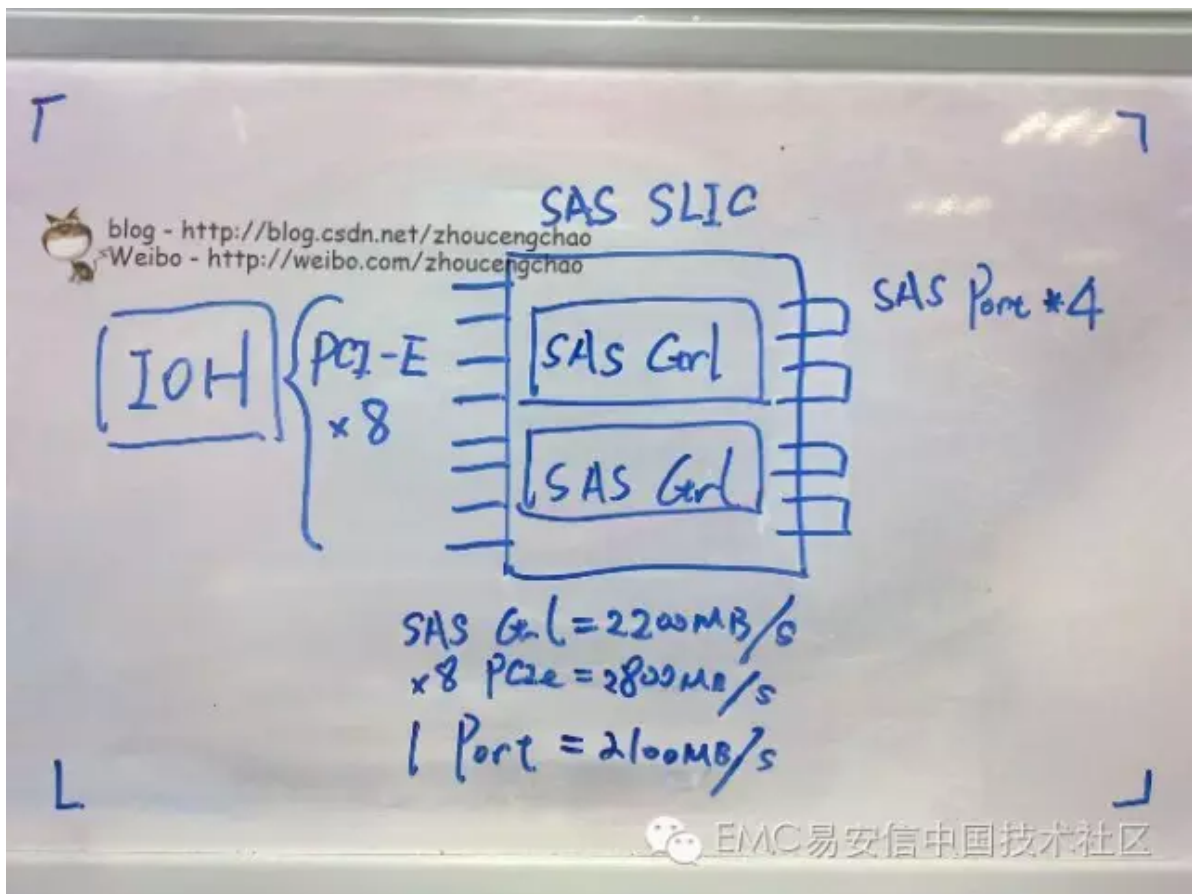 SAS SLIC
blog - http://blog.csdn.net/zhoucengchao
Weibo - http://weibo.com/zhoucengchao
SAS Port *4
IOH
PCI-E
x8
SAS Ctrl
SAS Ctrl
SAS Ctrl = 2200MB/s
x8 PCIe = 2800MB/s
1 Port = 2100MB/s
EMC易安信中国技术社区